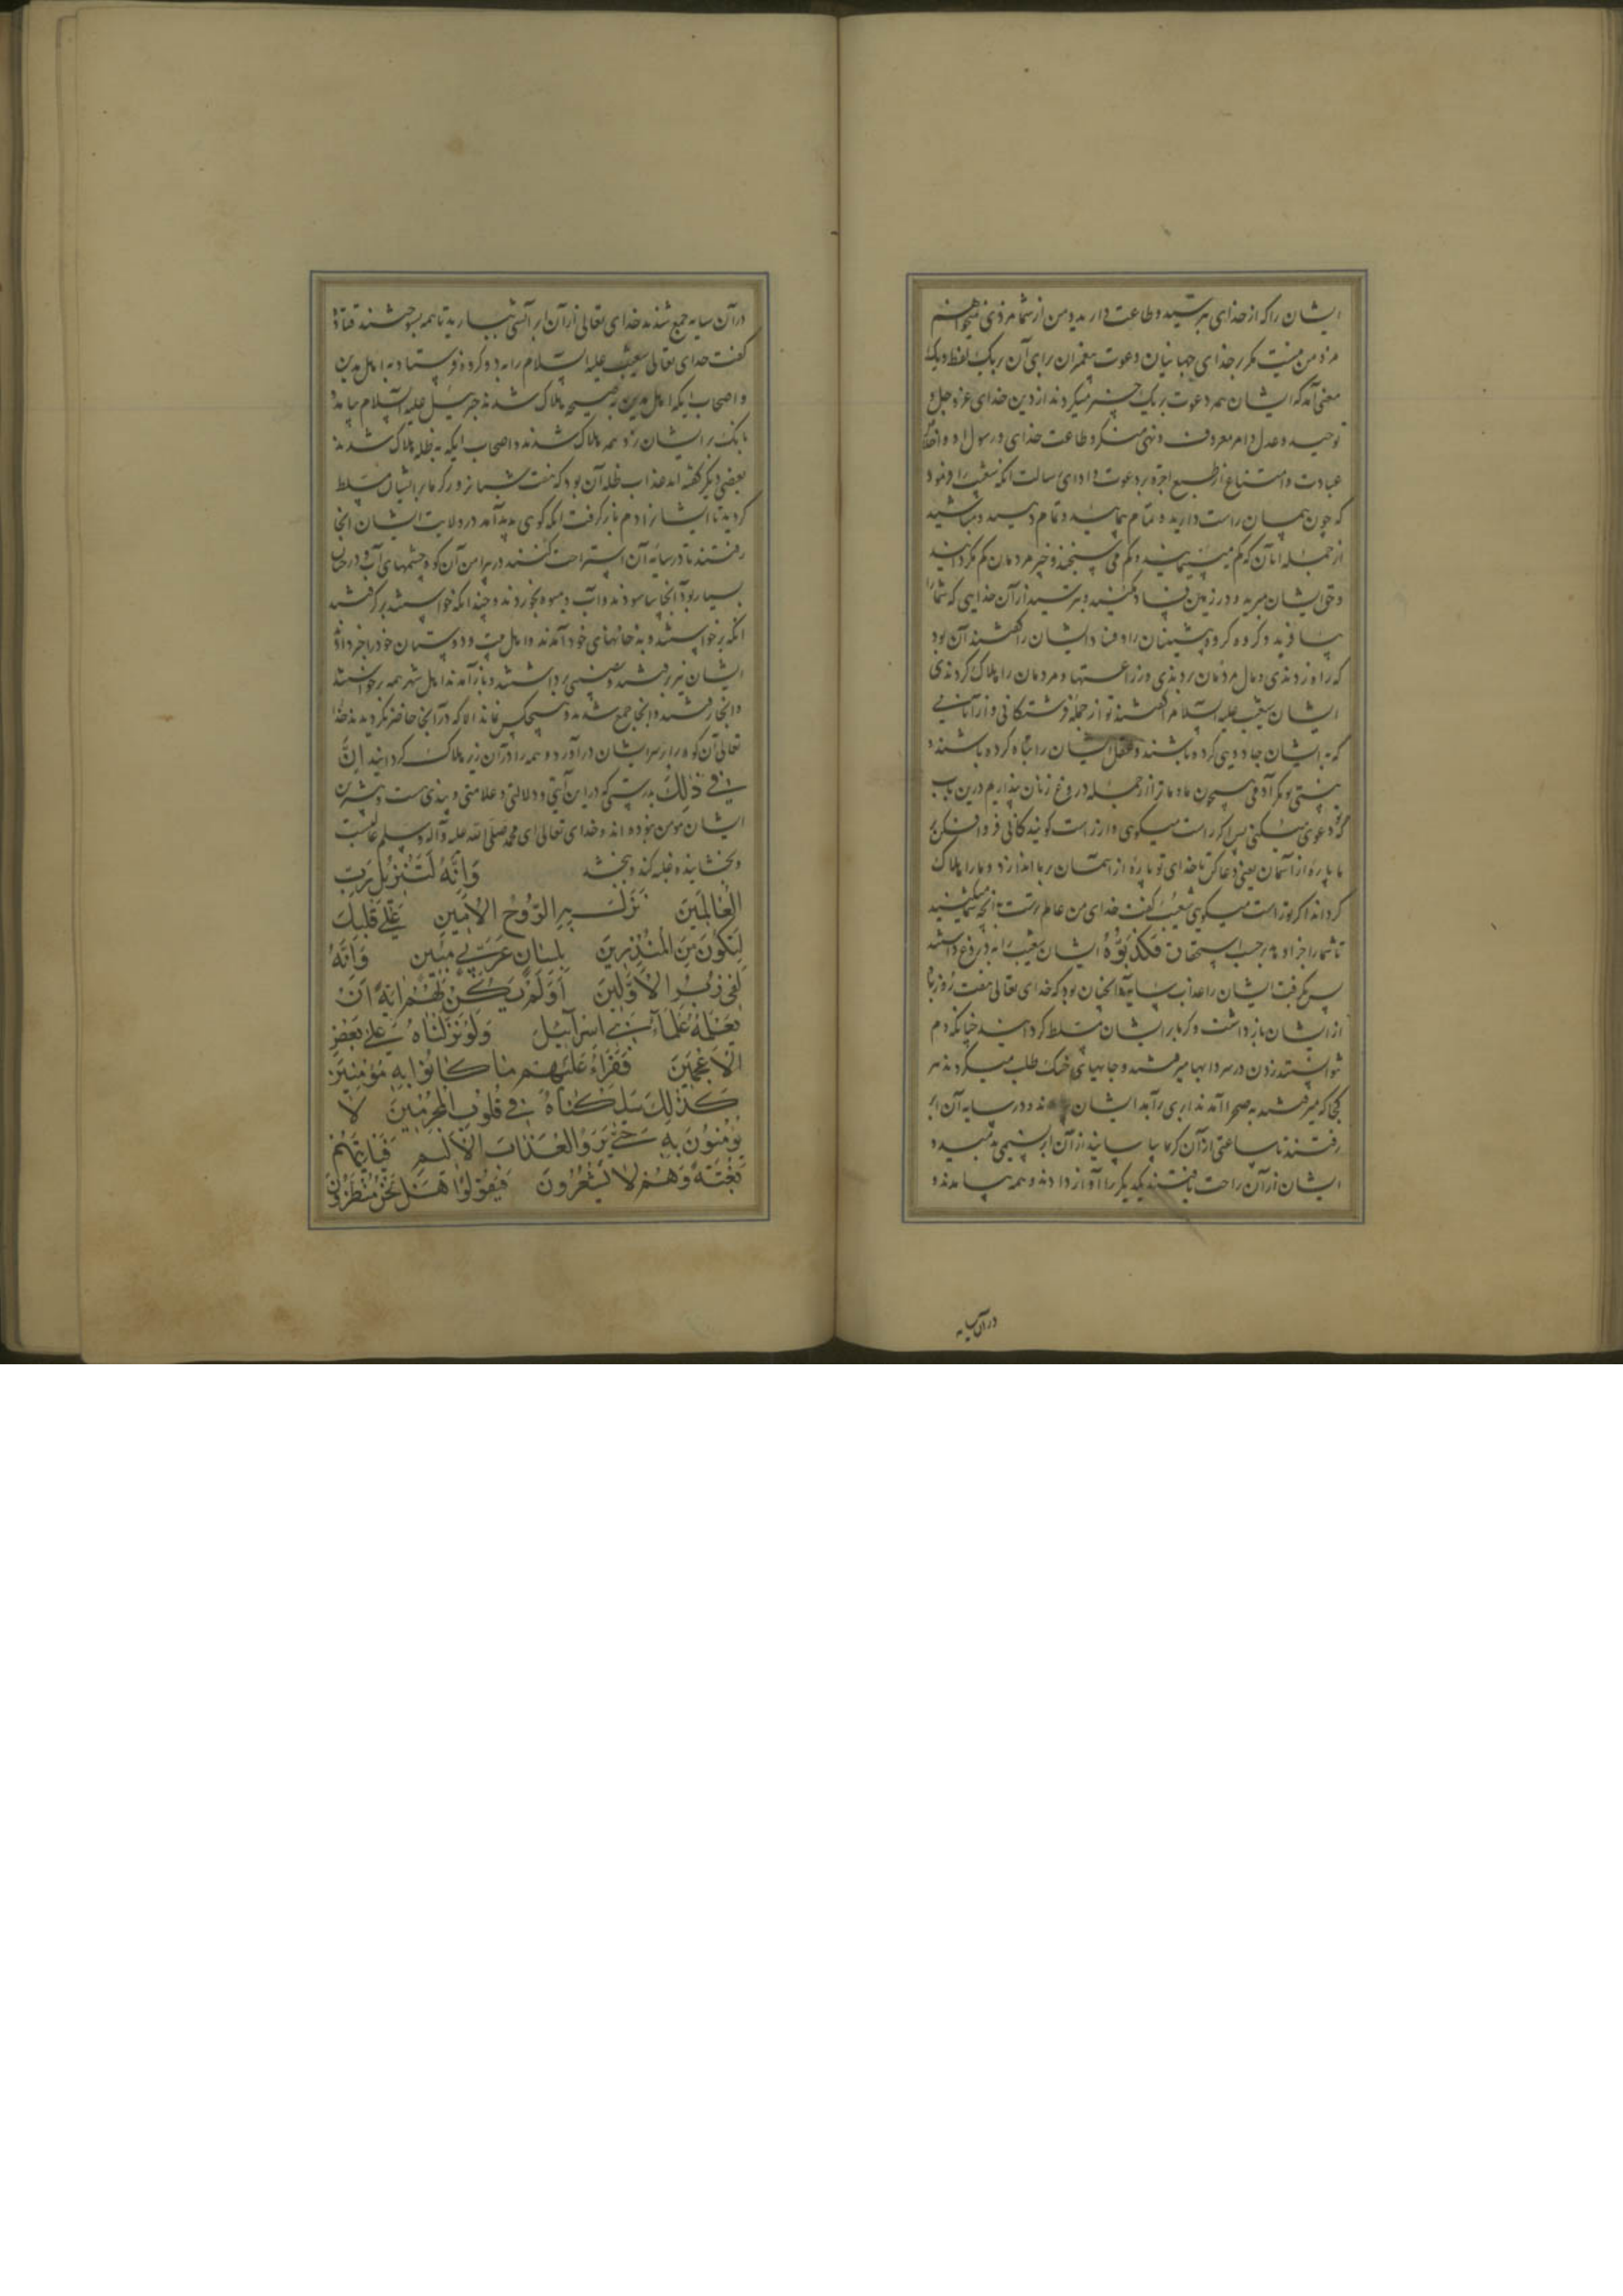 ایشان را که از خدای بترسید و طاعت دارید و من از شما مزدی نمیخواهم
مزد من نیست مگر بر خدای جهانیان و دعوت پیغمبران برای آن بر یک لفظ و یک
معنی آمد که ایشان همه دعوت بر یک چیز میکردند از دین خدای عز و جل و
توحید و عدل و امر معروف و نهی منکر و طاعت خدای و رسول او و اخلاص
عبادت و امتناع از طمع اجره بر دعوت و ادای رسالت انکه شعیب را فرمود
که چون پیمان راست دارید و تمام پیمائید و تمام دهید و مباشید
از جمله انان که کم میپیمایند و کم می سنجند و چیز مردمان کم مگردانید
و حق ایشان مبرید و در زمین فساد مکنید و بترسید از آن خدایی که شما را
بیافرید و گروه گروه پیشینان را و فساد ایشان را گفتند آن بود
که راه زدندی و مال مردمان بردندی و زراعتها و مردمان را هلاک کردندی
ایشان شعیب علیه السلام را گفتند تو از جمله فرشتگانی و از آنانی
که بر ایشان جادویی کرده باشند و عقل ایشان را تباه کرده باشند و
نیستی تو مگر آدمی همچون ما و ما ترا از جمله دروغ زنان پنداریم درین باب
که تو دعوی میکنی پس اگر راست میگوی و از راست گویندگانی فرو افکن بر
ما پاره از آسمان یعنی دعا کن تا خدای تو پاره از اسمان بر ما اندازد و ما را هلاک
کرداند اگر تو راست میگویی شعیب گفت خدای من عالم ترست بانچه شما میکنید
تا شما را جزا دهد بر حسب استحقاق فَكَذَّبُوهُ ایشان شعیب را به دروغ داشتند
پس بگرفت ایشان را عذاب سایه و آنچنان بود که خدای تعالی هفت روز باد
از ایشان باز داشت و گرما بر ایشان مسلط کردانید چنانکه دم
نتوانستند زدن در سردابها میرفتند و جایهای خنک طلب میکردند هر
کجا که میرفتند به صحرا آمدند ابری برآمد ایشان و در سایه آن ابر
رفتند تا ساعتی از آن گرما بیاسایند از آن ابر نسیمی بدمید و
ایشان از آن راحت یافتند یکدیگر را آواز دادند و همه بیامدند و
در آن سایه
در آن سایه جمع شدند خدای تعالی از آن ابر آتشی ببارید تا همه بسوختند قتاده
گفت خدای تعالی شعیب علیه السلام را به دو گروه فرستاد به اهل مدین
و اصحاب ایکه اهل مدین به صیحه هلاک شدند جبرئیل علیه السلام بیامد
بانگ بر ایشان زد همه هلاک شدند و اصحاب ایکه به ظله هلاک شدند
بعضی دیگر گفته اند عذاب ظله آن بود که هفت شبانروز گرما بر ایشان مسلط
کردید تا ایشانرا دم باز گرفت انکه کوهی پدید آمد در ولایت ایشان انجا
رفتند تا در سایه آن استراحت کنند در پیرامن آن کوه چشمهای آب و درختان
بسیار بود آنجا بیاسودند و آب و میوه بخوردند و چندانکه خواستند برگرفتند
انکه برخواستند و به خانهای خود آمدند و اهل بیت و دوستان خود را خبر دادند
ایشان نیز برفتند و نصیبی برداشتند و باز آمدند اهل شهر همه برخواستند
و انجا رفتند و انجا جمع شدند و هیچکس نماند الا که در آنجا حاضر گردیدند خدا
تعالی آن کوه را بر سر ایشان در آورد و همه را در آن زیر هلاک کردانید اِنَّ
فِي ذٰلِكَ بدرستی که در این آیتی و دلالتی و علامتی و پندی ست و بیشترین
ایشان مؤمن نبوده اند و خدای تعالی ای محمد صلی الله علیه و آله و سلم غالبست
و بخشاینده غلبه کند و ببخشد وَاِنَّهُ لَتَنْزِيلُ رَبِّ
الْعَالَمِينَ نَزَلَ بِهِ الرُّوحُ الْاَمِينُ عَلٰى قَلْبِكَ
لِتَكُونَ مِنَ الْمُنْذِرِينَ بِلِسَانٍ عَرَبِيٍّ مُبِينٍ وَاِنَّهُ
لَفِي زُبُرِ الْاَوَّلِينَ اَوَلَمْ يَكُنْ لَهُمْ اٰيَةً اَنْ
يَعْلَمَهُ عُلَمَاءُ بَنِي اِسْرَائِيلَ وَلَوْ نَزَّلْنَاهُ عَلٰى بَعْضِ
الْاَعْجَمِينَ فَقَرَاَهُ عَلَيْهِمْ مَا كَانُوا بِهِ مُؤْمِنِينَ
كَذٰلِكَ سَلَكْنَاهُ فِي قُلُوبِ الْمُجْرِمِينَ لَا
يُؤْمِنُونَ بِهِ حَتّٰى يَرَوُا الْعَذَابَ الْاَلِيمَ فَيَاْتِيَهُمْ
بَغْتَةً وَهُمْ لَا يَشْعُرُونَ فَيَقُولُوا هَلْ نَحْنُ مُنْظَرُونَ